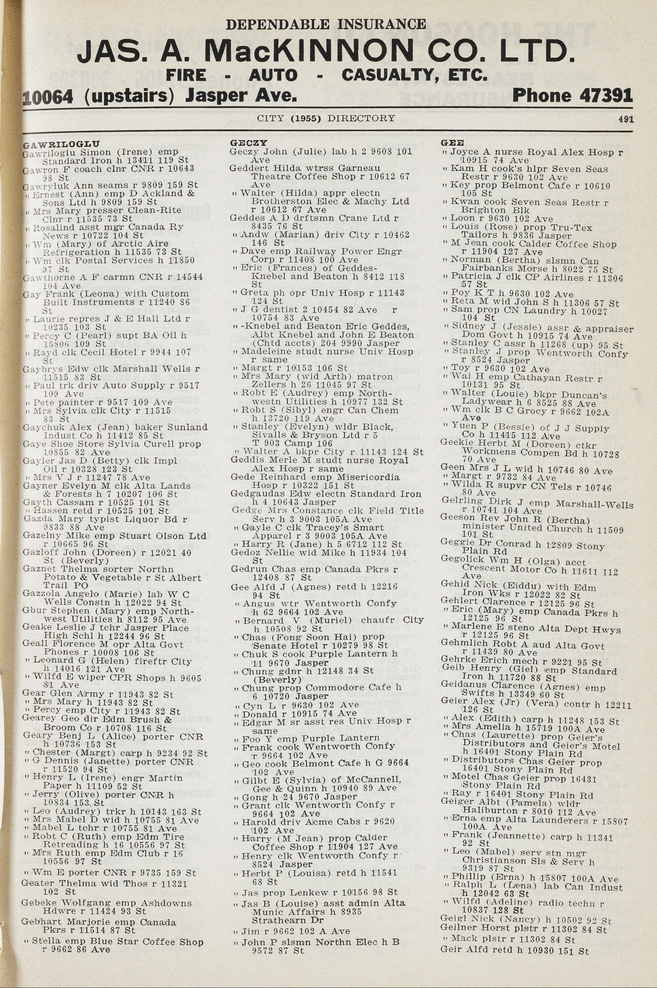 DEPENDABLE INSURANCE
JAS. A. MacKINNON CO. LTD.
FIRE - AUTO - CASUALTY, ETC.
10064 (upstairs) Jasper Ave. Phone 47391
CITY (1955) DIRECTORY 491
GAWRILOGLU
Gawriloglu Simon (Irene) emp
Standard Iron h 13411 119 St
Gawron F coach clnr CNR r 10643
98 St
Gawryluk Ann seams r 9809 159 St
" Ernest (Ann) emp D Ackland &
Sons Ltd h 9809 159 St
" Mrs Mary presser Clean-Rite
Clnr r 11535 73 St
" Rosalind asst mgr Canada Ry
News r 10722 104 St
" Wm (Mary) of Arctic Aire
Refrigeration h 11535 73 St
" Wm clk Postal Services h 11850
97 St
Gawthorne A F carmn CNR r 14544
104 Ave
Gay Frank (Leona) with Custom
Built Instruments r 11240 86
St
" Laurie repres J & E Hall Ltd r
10235 103 St
" Percy C (Pearl) supt BA Oil h
15806 109 St
" Rayd clk Cecil Hotel r 9944 107
St
Gaybrys Edw clk Marshall Wells r
11515 83 St
" Paul trk driv Auto Supply r 9517
109 Ave
" Pete painter r 9517 109 Ave
" Mrs Sylvia clk City r 11515
83 St
Gaychuk Alex (Jean) baker Sunland
Indust Co h 11412 85 St
Gaye Shoe Store Sylvia Curell prop
10855 82 Ave
Gayler Jas D (Betty) clk Impl
Oil r 10328 123 St
" Mrs V J r 11247 78 Ave
Gayner Evelyn M clk Alta Lands
& Forests h 7 10207 106 St
Gayth Cassam r 10525 101 St
" Hassen retd r 10525 101 St
Gazda Mary typist Liquor Bd r
9833 88 Ave
Gazelny Mike emp Stuart Olson Ltd
r 10665 96 St
Gazloff John (Doreen) r 12021 40
St (Beverly)
Gaznet Thelma sorter Northn
Potato & Vegetable r St Albert
Trail PO
Gazzola Angelo (Marie) lab W C
Wells Constn h 12022 94 St
Gbur Stephen (Mary) emp North-
west Utilities h 8112 95 Ave
Geake Leslie J tchr Jasper Place
High Schl h 12244 96 St
Geall Florence M opr Alta Govt
Phones r 10008 106 St
" Leonard G (Helen) fireftr City
h 14016 121 Ave
" Wilfd E wiper CPR Shops h 9605
81 Ave
Gear Glen Army r 11943 82 St
" Mrs Mary h 11943 82 St
" Percy emp City r 11943 82 St
Gearey Geo dir Edm Brush &
Broom Co r 10708 116 St
Geary Benj L (Alice) porter CNR
h 10736 153 St
" Chester (Margt) carp h 9234 92 St
" G Dennis (Janette) porter CNR
r 11520 94 St
" Henry L (Irene) engr Martin
Paper h 11109 52 St
" Jerry (Olive) porter CNR h
10834 153 St
" Leo (Audrey) trkr h 10143 163 St
" Mrs Mabel D wid h 10755 81 Ave
" Mabel L tchr r 10755 81 Ave
" Robt C (Ruth) emp Edm Tire
Retreading h 16 10556 97 St
" Mrs Ruth emp Edm Club r 16
10556 97 St
" Wm E porter CNR r 9735 159 St
Geater Thelma wid Thos r 11321
102 St
Gebeke Wolfgang emp Ashdowns
Hdwre r 11424 93 St
Gebhart Marjorie emp Canada
Pkrs r 11514 87 St
" Stella emp Blue Star Coffee Shop
r 9662 86 Ave
GECZY
Geczy John (Julie) lab h 2 9608 101
Ave
Geddert Hilda wtrss Garneau
Theatre Coffee Shop r 10612 67
Ave
" Walter (Hilda) appr electn
Brotherston Elec & Machy Ltd
r 10612 67 Ave
Geddes A D drftsmn Crane Ltd r
8435 76 St
" Andw (Marian) driv City r 10462
146 St
" Dave emp Railway Power Engr
Corp r 11408 100 Ave
" Eric (Frances) of Geddes-
Knebel and Beaton h 8412 118
St
" Greta ph opr Univ Hosp r 11143
124 St
" J G dentist 2 10454 82 Ave r
10754 83 Ave
" -Knebel and Beaton Eric Geddes,
Albt Knebel and John E Beaton
(Chtd accts) 204 9990 Jasper
" Madeleine studt nurse Univ Hosp
r same
" Margt r 10153 106 St
" Mrs Mary (wid Arth) matron
Zellers h 26 11045 97 St
" Robt E (Audrey) emp North-
westn Utilities h 10977 132 St
" Robt S (Sibyl) engr Can Chem
h 13720 119 Ave
" Stanley (Evelyn) wldr Black,
Sivalls & Bryson Ltd r 5
T 903 Camp 106
" Walter A bkpr City r 11143 124 St
Geddis Merle M studt nurse Royal
Alex Hosp r same
Gede Reinhard emp Misericordia
Hosp r 10322 151 St
Gedgaudas Edw electn Standard Iron
h 4 10643 Jasper
Gedge Mrs Constance clk Field Title
Serv h 3 9003 105A Ave
" Gayle C clk Tracey's Smart
Apparel r 3 9003 105A Ave
" Harry R (Jane) h 5 6712 112 St
Gedoz Nellie wid Mike h 11934 104
St
Gedrun Chas emp Canada Pkrs r
12408 87 St
Gee Alfd J (Agnes) retd h 12216
94 St
" Angus wtr Wentworth Confy
h 62 9664 102 Ave
" Bernard V (Muriel) chaufr City
h 10508 92 St
" Chas (Fong Soon Hai) prop
Senate Hotel r 10279 98 St
" Chuk S cook Purple Lantern h
11 9670 Jasper
" Chung gdnr h 12148 34 St
(Beverly)
" Chung prop Commodore Cafe h
6 10720 Jasper
" Cyn L r 9630 102 Ave
" Donald r 10915 74 Ave
" Edgar M sr asst res Univ Hosp r
same
" Foo Y emp Purple Lantern
" Frank cook Wentworth Confy
r 9664 102 Ave
" Geo cook Belmont Cafe h G 9664
102 Ave
" Gilbt E (Sylvia) of McCannell,
Gee & Quinn h 10940 89 Ave
" Gong h 24 9670 Jasper
" Grant clk Wentworth Confy r
9664 102 Ave
" Harold driv Acme Cabs r 9620
102 Ave
" Harry (M Jean) prop Calder
Coffee Shop r 11904 127 Ave
" Henry clk Wentworth Confy r
8524 Jasper
" Herbt P (Louisa) retd h 11541
68 St
" Jas prop Lenkew r 10156 98 St
" Jas B (Louise) asst admin Alta
Munic Affairs h 8935
Strathearn Dr
" Jim r 9662 102 A Ave
" John P slsmn Northn Elec h B
9572 87 St
GEE
" Joyce A nurse Royal Alex Hosp r
10915 74 Ave
" Kam H cook's hlpr Seven Seas
Restr r 9630 102 Ave
" Key prop Belmont Cafe r 10610
105 St
" Kwan cook Seven Seas Restr r
Brighton Blk
" Loon r 9630 102 Ave
" Louis (Rose) prop Tru-Tex
Tailors h 9836 Jasper
" M Jean cook Calder Coffee Shop
r 11904 127 Ave
" Norman (Bertha) slsmn Can
Fairbanks Morse h 8022 75 St
" Patricia J clk CP Airlines r 11306
57 St
" Poy K T h 9630 102 Ave
" Reta M wid John S h 11306 57 St
" Sam prop CN Laundry h 10027
104 St
" Sidney J (Jessie) assr & appraiser
Dom Govt h 10915 74 Ave
" Stanley C assr h 11268 (up) 95 St
" Stanley J prop Wentworth Confy
r 8524 Jasper
" Toy r 9630 102 Ave
" Wai H emp Cathayan Restr r
10131 95 St
" Walter (Louie) bkpr Duncan's
Ladywear h 6 8525 88 Ave
" Wm clk B C Grocy r 9662 102A
Ave
" Yuen P (Bessie) of J J Supply
Co h 11415 112 Ave
Geekie Herbt M (Doreen) ctkr
Workmens Compen Bd h 10728
70 Ave
Geen Mrs J L wid h 10746 80 Ave
" Margt r 9732 84 Ave
" Wilda R supvr CN Tels r 10746
80 Ave
Geering Dirk J emp Marshall-Wells
r 10741 104 Ave
Geeson Rev John R (Bertha)
minister United Church h 11509
101 St
Geggie Dr Conrad h 12809 Stony
Plain Rd
Gegolick Wm H (Olga) acct
Crescent Motor Co h 11611 112
Ave
Gehid Nick (Eiddu) with Edm
Iron Wks r 12022 82 St
Gehlert Clarence r 12125 96 St
" Eric (Mary) emp Canada Pkrs h
12125 96 St
" Marlene E steno Alta Dept Hwys
r 12125 96 St
Gehmlich Robt A aud Alta Govt
r 11439 80 Ave
Gehrke Erich mech r 9221 95 St
Geib Henry (Giel) emp Standard
Iron h 11720 88 St
Geidanus Clarence (Agnes) emp
Swifts h 13349 60 St
Geier Alex Jr (Vera) contr h 12211
126 St
" Alex (Edith) carp h 11248 153 St
" Mrs Amelia h 15719 100A Ave
" Chas (Laurette) prop Geier's
Distributors and Geier's Motel
h 16401 Stony Plain Rd
" Distributors Chas Geier prop
16401 Stony Plain Rd
" Motel Chas Geier prop 16431
Stony Plain Rd
" Ray r 16401 Stony Plain Rd
Geiger Albt (Pamela) wldr
Haliburton r 8010 112 Ave
" Erna emp Alta Launderers r 15807
100A Ave
" Frank (Jeannette) carp h 11341
92 St
" Leo (Mabel) serv stn mgr
Christianson Sls & Serv h
9319 87 St
" Phillip (Erna) h 15807 100A Ave
" Ralph L (Lena) lab Can Indust
h 12042 63 St
" Wilfd (Adeline) radio techn r
10837 128 St
Geigl Nick (Nancy) h 10502 92 St
Geilner Horst plstr r 11302 84 St
" Mack plstr r 11302 84 St
Geir Alfd retd h 10930 151 St